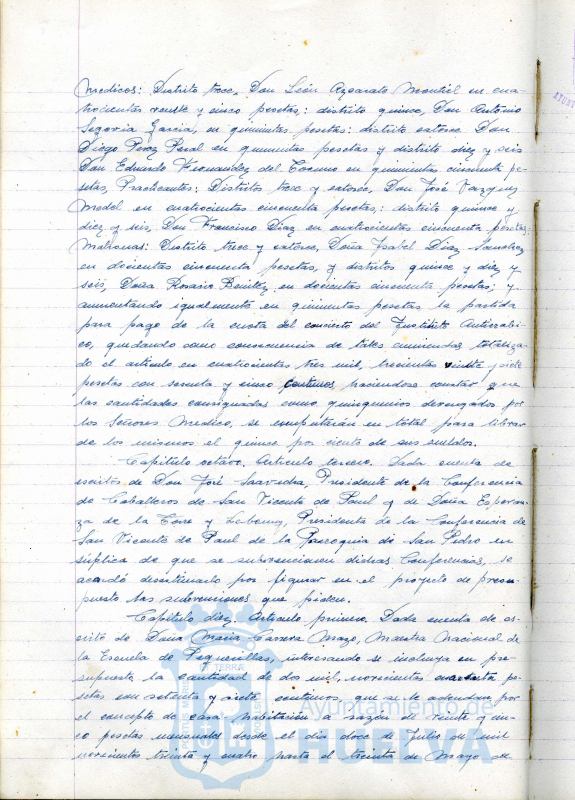 Medicos: Distrito trece, Don León Azcarate Montiel en cua-
trocientas veinte y cinco pesetas: distrito quince, Don Antonio
Segovia Garcia, en quinientas pesetas: distrito catorce Don
Diego Perez Peral en quinientas pesetas y distrito diez y seis
Don Eduardo Fernandez del Torno en quinientas cincuenta pe-
setas, Practicantes: Distritos trece y catorce, Don José Vazquez
Medel en cuatrocientas cincuenta pesetas: distrito quince y
diez y seis, Don Francisco Diaz en cuatrocientas cincuenta pesetas:
Matronas: Distrito trece y catorce, Doña Isabel Diaz Sanchez
en docientas cincuenta pesetas, y distritos quince y diez y
seis, Doña Rosario Benitez, en docientas cincuenta pesetas; y
aumentando igualmente en quinientas pesetas la partida
para pago de la cuota del concierto del Instituto Antirrabi-
co, quedando como consecuencia de tales enmiendas totaliza-
do el articulo en cuatrocientas tres mil, trecientas veinte y siete
pesetas con sesenta y cinco centimos, haciendose constar que
las cantidades consignadas como quinquenios devengados por
los Señores Medico, se computarán en total para librar
de los mismos el quince por ciento de sus sueldos.
Capitulo octavo. Articulo tercero. Dada cuenta de
escritos de Don José Saavedra, Presidente de la Conferencia
de Caballeros de San Vicente de Paul y de Doña Esperan-
za de la Torre y Presidenta de la Conferencia de
San Vicente de Paul de la Parroquia de San Pedro en
súplica de que se subvencionen dichas Conferencias, se
acordó desestimarlo por figurar en el proyecto de presu-
puesto las subvenciones que piden.
Capitulo diez. Articulo primero. Dada cuenta de es-
crito de Doña Maria Carrera Mazo, Maestra Nacional de
la Escuela de Peguerillas, interesando se incluya en pre-
supuesto la cantidad de dos mil, novecientas cuarenta pe-
setas con setenta y siete centimos, que se le adeudan por
el concepto de casa habitación a razón de veinte y cin-
co pesetas mensuales desde el dia doce de Julio de mil
novecientos treinta y cuatro hasta el treinta de Mayo de
Ayuntamiento de
HUELVA